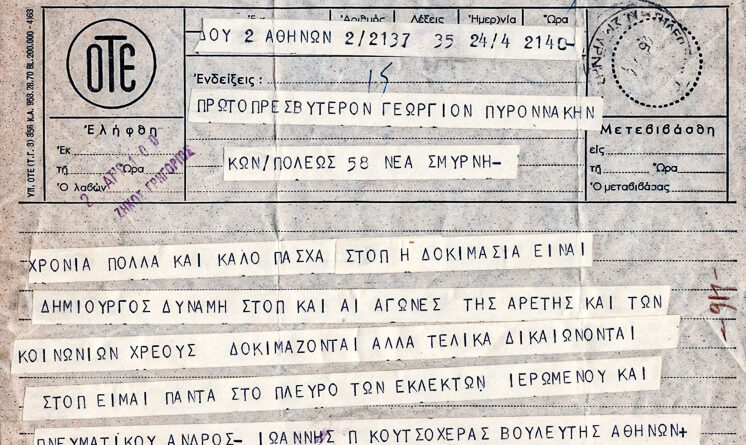 Ἀριθμός Λέξεις Ἡμερ)νία Ὥρα
ΔΟΥ 2 ΑΘΗΝΩΝ 2/2137 35 24/4 2140-
ΟΤΕ
Ἐνδείξεις : 15
ΠΡΩΤΟΠΡΕΣΒΥΤΕΡΟΝ ΓΕΩΡΓΙΟΝ ΠΥΡΟΝΝΑΚΗΝ
Ἐλήφθη
Μετεβιβάσθη
Ἐκ
τῇ Ὥρα
Ὁ λαβών
ΖΗΚΟΣ ΓΡΗΓΟΡΙΟΣ
ΚΩΝ/ΠΟΛΕΩΣ 58 ΝΕΑ ΣΜΥΡΝΗ-
εἰς
τῇ Ὥρα
Ὁ μεταβιβάσας
ΧΡΟΝΙΑ ΠΟΛΛΑ ΚΑΙ ΚΑΛΟ ΠΑΣΧΑ ΣΤΟΠ Η ΔΟΚΙΜΑΣΙΑ ΕΙΝΑΙ
ΔΗΜΙΟΥΡΓΟΣ ΔΥΝΑΜΗ ΣΤΟΠ ΚΑΙ ΑΙ ΑΓΩΝΕΣ ΤΗΣ ΑΡΕΤΗΣ ΚΑΙ ΤΩΝ
ΚΟΙΝΩΝΙΩΝ ΧΡΕΟΥΣ ΔΟΚΙΜΑΖΟΝΤΑΙ ΑΛΛΑ ΤΕΛΙΚΑ ΔΙΚΑΙΩΝΟΝΤΑΙ
ΣΤΟΠ ΕΙΜΑΙ ΠΑΝΤΑ ΣΤΟ ΠΛΕΥΡΟ ΤΩΝ ΕΚΛΕΚΤΩΝ ΙΕΡΩΜΕΝΟΥ ΚΑΙ
ΠΝΕΥΜΑΤΙΚΟΥ ΑΝΔΡΟΣ- ΙΩΑΝΝΗΣ Π ΚΟΥΤΣΟΧΕΡΑΣ ΒΟΥΛΕΥΤΗΣ ΑΘΗΝΩΝ+